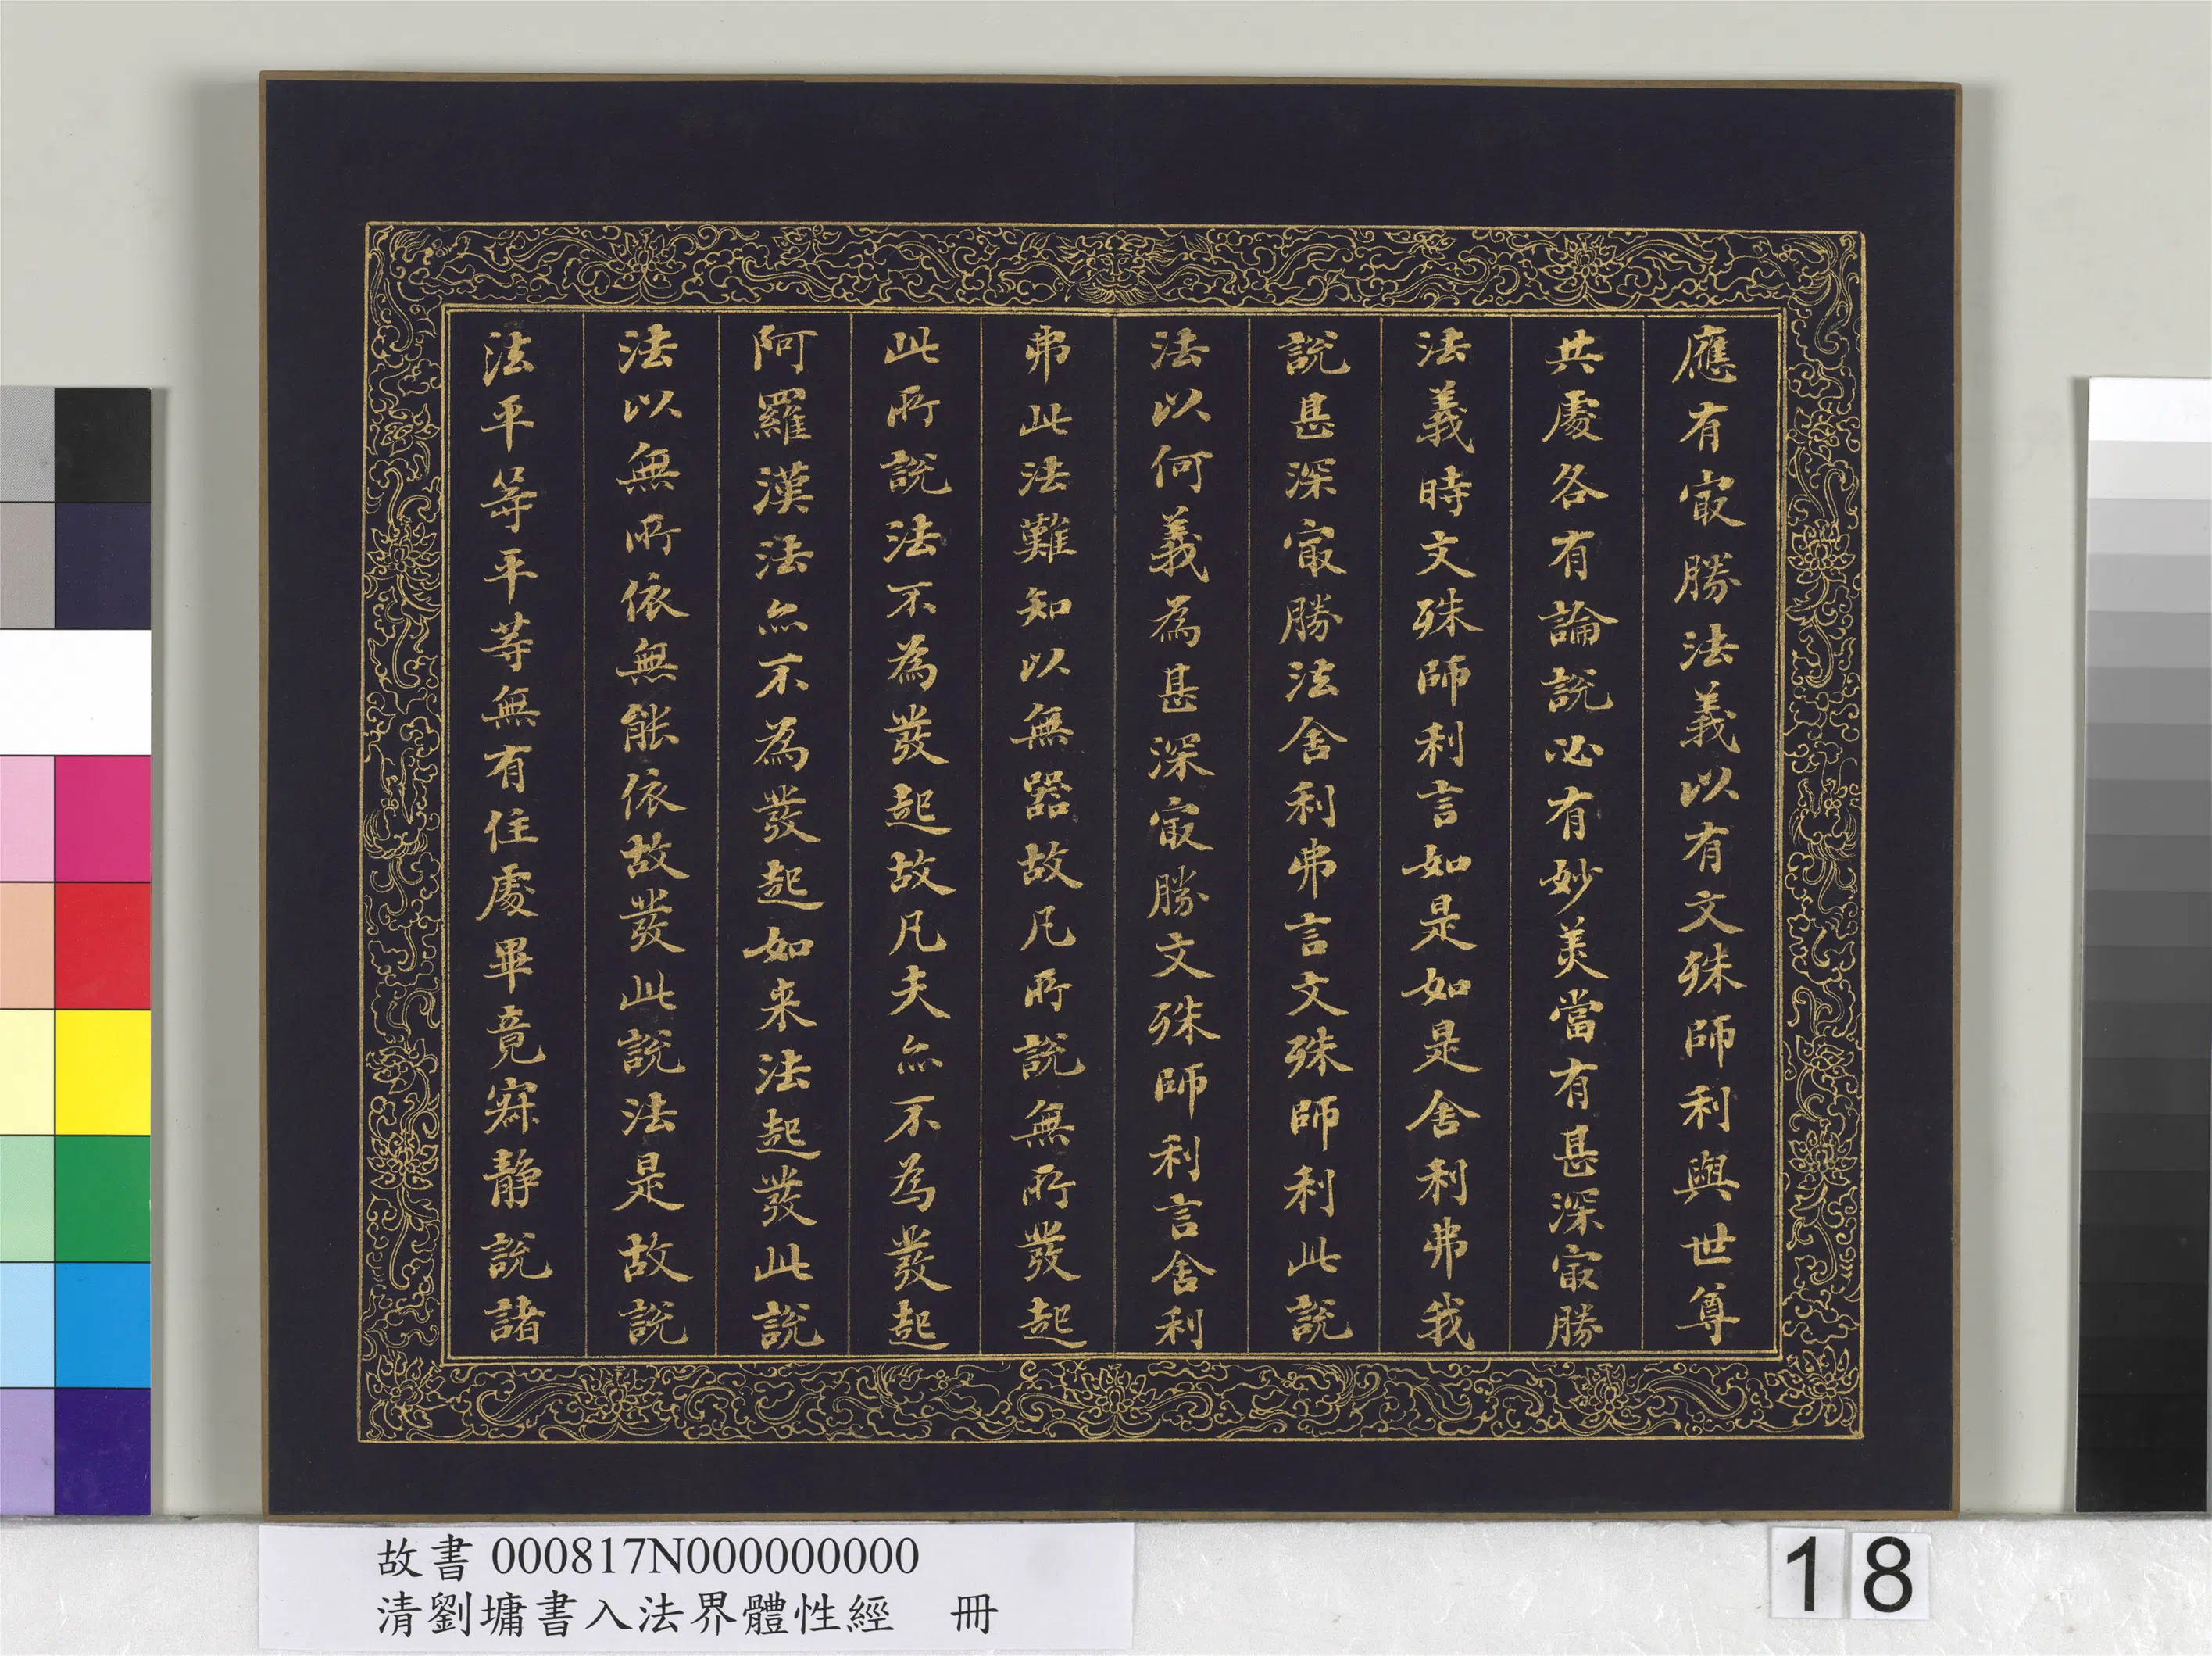 應有㝡勝法義以有文殊師利與世尊
共處各有論說必有妙美當有甚深㝡勝
法義時文殊師利言如是如是舍利弗我
說甚深㝡勝法舍利弗言文殊師利此說
法以何義為甚深㝡勝文殊師利言舍利
弗此法難知以無器故凡所說無所發起
此所說法不為發起故凡夫亦不為發起
阿羅漢法亦不為發起如来法起發此說
法以無所依無能依故發此說法是故說
法平等平等無有住處畢竟寂静說諸
故書 000817N000000000
清劉墉書入法界體性經 冊
18